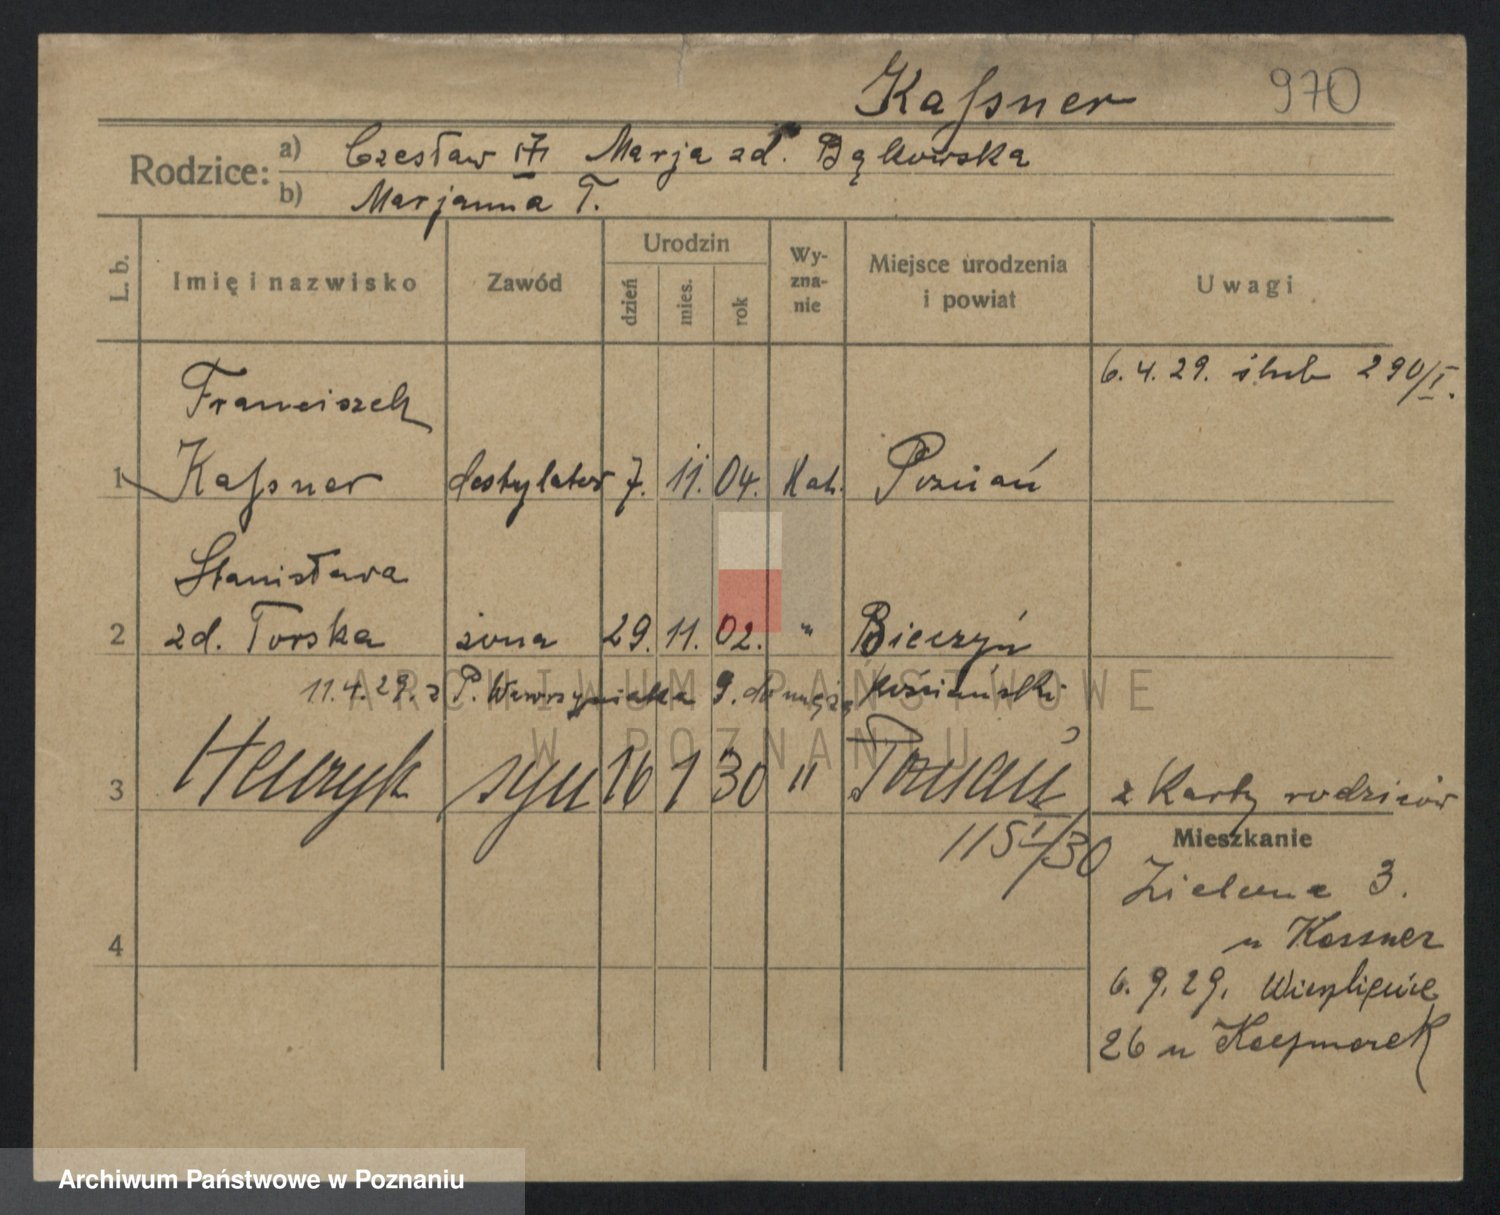 Kaſsner 970
Rodzice: a) Czesław Marja zd. Bąkowska
b) Marjanna T.
L. b. Imię i nazwisko Zawód Urodzin dzień mies. rok Wy-zna-nie Miejsce urodzenia i powiat Uwagi
6. 4. 29. ślub 290/I.
Franciszek
1 Kaſsner destylator 7. 11. 04. Kat. Poznań
Stanisława
2 zd. Torska żona 29. 11. 02. " Bieczyń
11. 4. 29. z P. Wawrzyniaka 9. do męża kościański
3 Henryk syn 16 1 30 " Poznań z Karty rodziców
115 I/30
Mieszkanie
Zielona 3.
4 u Kassner
6. 9. 29. Wierzbięcice
26 u Kaczmarek
ARCHIWUM PAŃSTWOWE
W POZNANIU
Archiwum Państwowe w Poznaniu